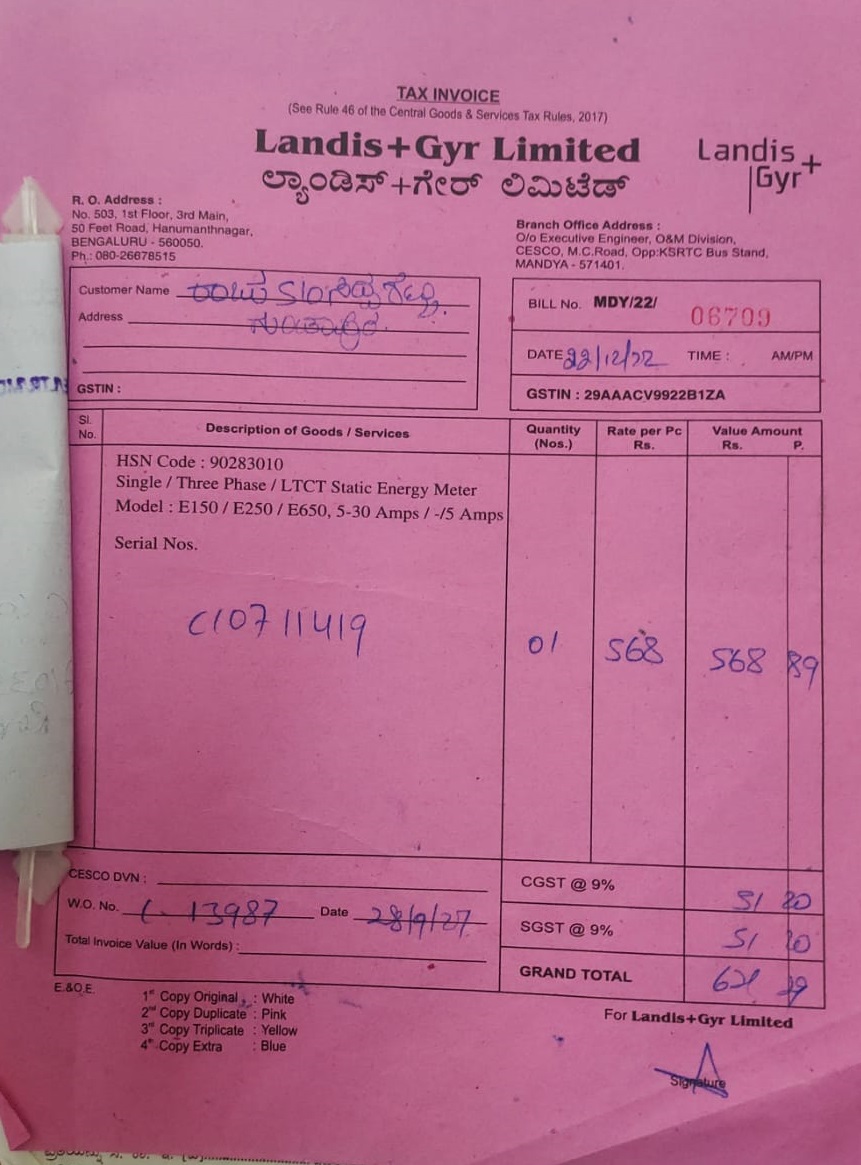 TAX INVOICE
(See Rule 46 of the Central Goods & Services Tax Rules, 2017)
Landis+Gyr Limited
ಲ್ಯಾಂಡಿಸ್+ಗೇರ್ ಲಿಮಿಟೆಡ್
Landis
Gyr+
R. O. Address :
No. 503, 1st Floor, 3rd Main,
50 Feet Road, Hanumanthnagar,
BENGALURU - 560050.
Ph.: 080-26678515
Branch Office Address :
O/o Executive Engineer, O&M Division,
CESCO, M.C.Road, Opp:KSRTC Bus Stand,
MANDYA - 571401.
Customer Name
Address
GSTIN :
BILL No. MDY/22/ 06709
DATE 22/12/22 TIME : AM/PM
GSTIN : 29AAACV9922B1ZA
Sl. No. Description of Goods / Services Quantity (Nos.) Rate per Pc Rs. Value Amount Rs. P.
HSN Code : 90283010
Single / Three Phase / LTCT Static Energy Meter
Model : E150 / E250 / E650, 5-30 Amps / -/5 Amps
Serial Nos.
C10711419 01 568 568 89
CESCO DVN :
W.O. No. 13987 Date
Total Invoice Value (In Words) :
CGST @ 9% 51 20
SGST @ 9% 51 20
GRAND TOTAL
E.&O.E.
1st Copy Original : White
2nd Copy Duplicate : Pink
3rd Copy Triplicate : Yellow
4th Copy Extra : Blue
For Landis+Gyr Limited
Signature